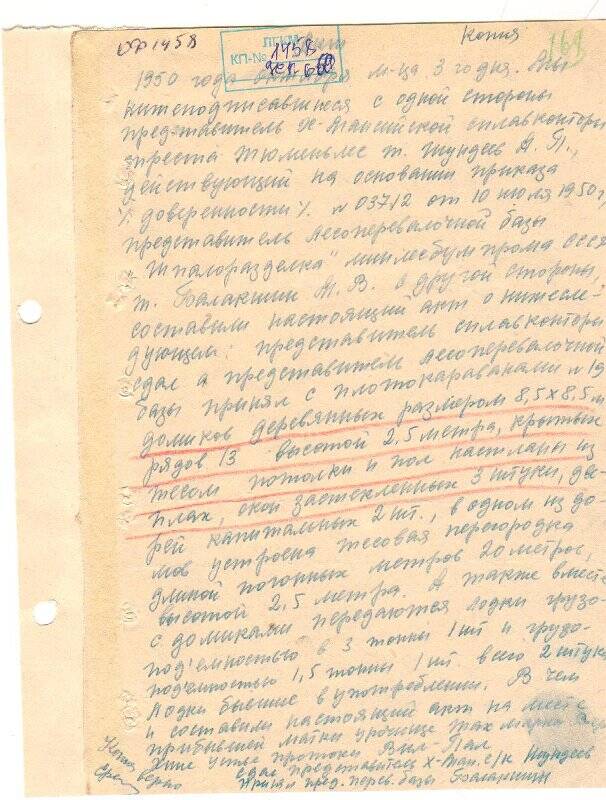 ОФ 1458
Копия
169
ЛГКМ
КП-№ 1458
Акт
1950 года октября м-ца 3го дня. Мы
нижеподписавшиеся с одной стороны
представитель Х-Мансийской сплавконторы
треста Тюменьлес т. Шундеев А. П.,
действующий на основании приказа
/доверенности/. № 037/2 от 10 июля 1950 г,
представитель Лесоперевалочной базы
"Шпалоразделка" минлесбумпрома СССР
т. Балакшин М. В. с другой стороны,
составили настоящий акт о нижесле-
дующем: представитель сплавконторы
сдал а представитель Лесоперевалочной
базы принял с плотокараванами № 19
домиков деревянных размером 8,5х8,5 м
рядов 13 высотой 2,5 метра, крытых
тесом потолки и пол настланы из
плах, окон застекленных 3 штуки, две-
рей капитальных 2 шт., в одном из до-
мов устроена тесовая перегородка
длиной погонных метров 20 метров,
высотой 2,5 метра. А также вместе
с домиками передаются лодки грузо-
под'емностью в 3 тонны 1 шт и грузо-
под'емностью 1,5 тонны 1 шт. всего 2 штуки
Лодки бывшие в употреблении. В чем
и составили настоящий акт на месте
прибывшей матки урочище
устье протоки
Сдал представитель Х-Ман. с/к Шундеев
Принял пред. перев. базы Балакшин
Копия
верна